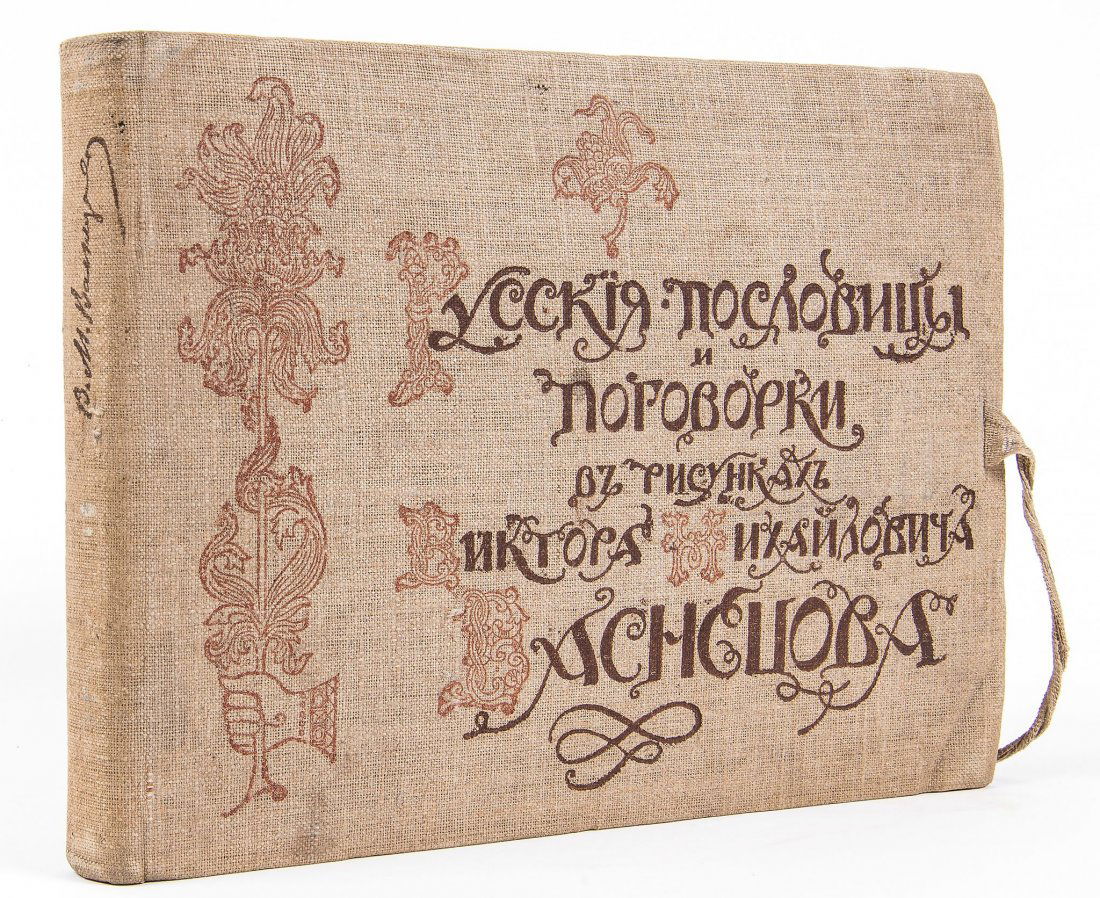 В. М. Васнецовъ
Русскія·пословицы
и
поговорки
въ рисункахъ
Виктора Михайловича
Васнецова